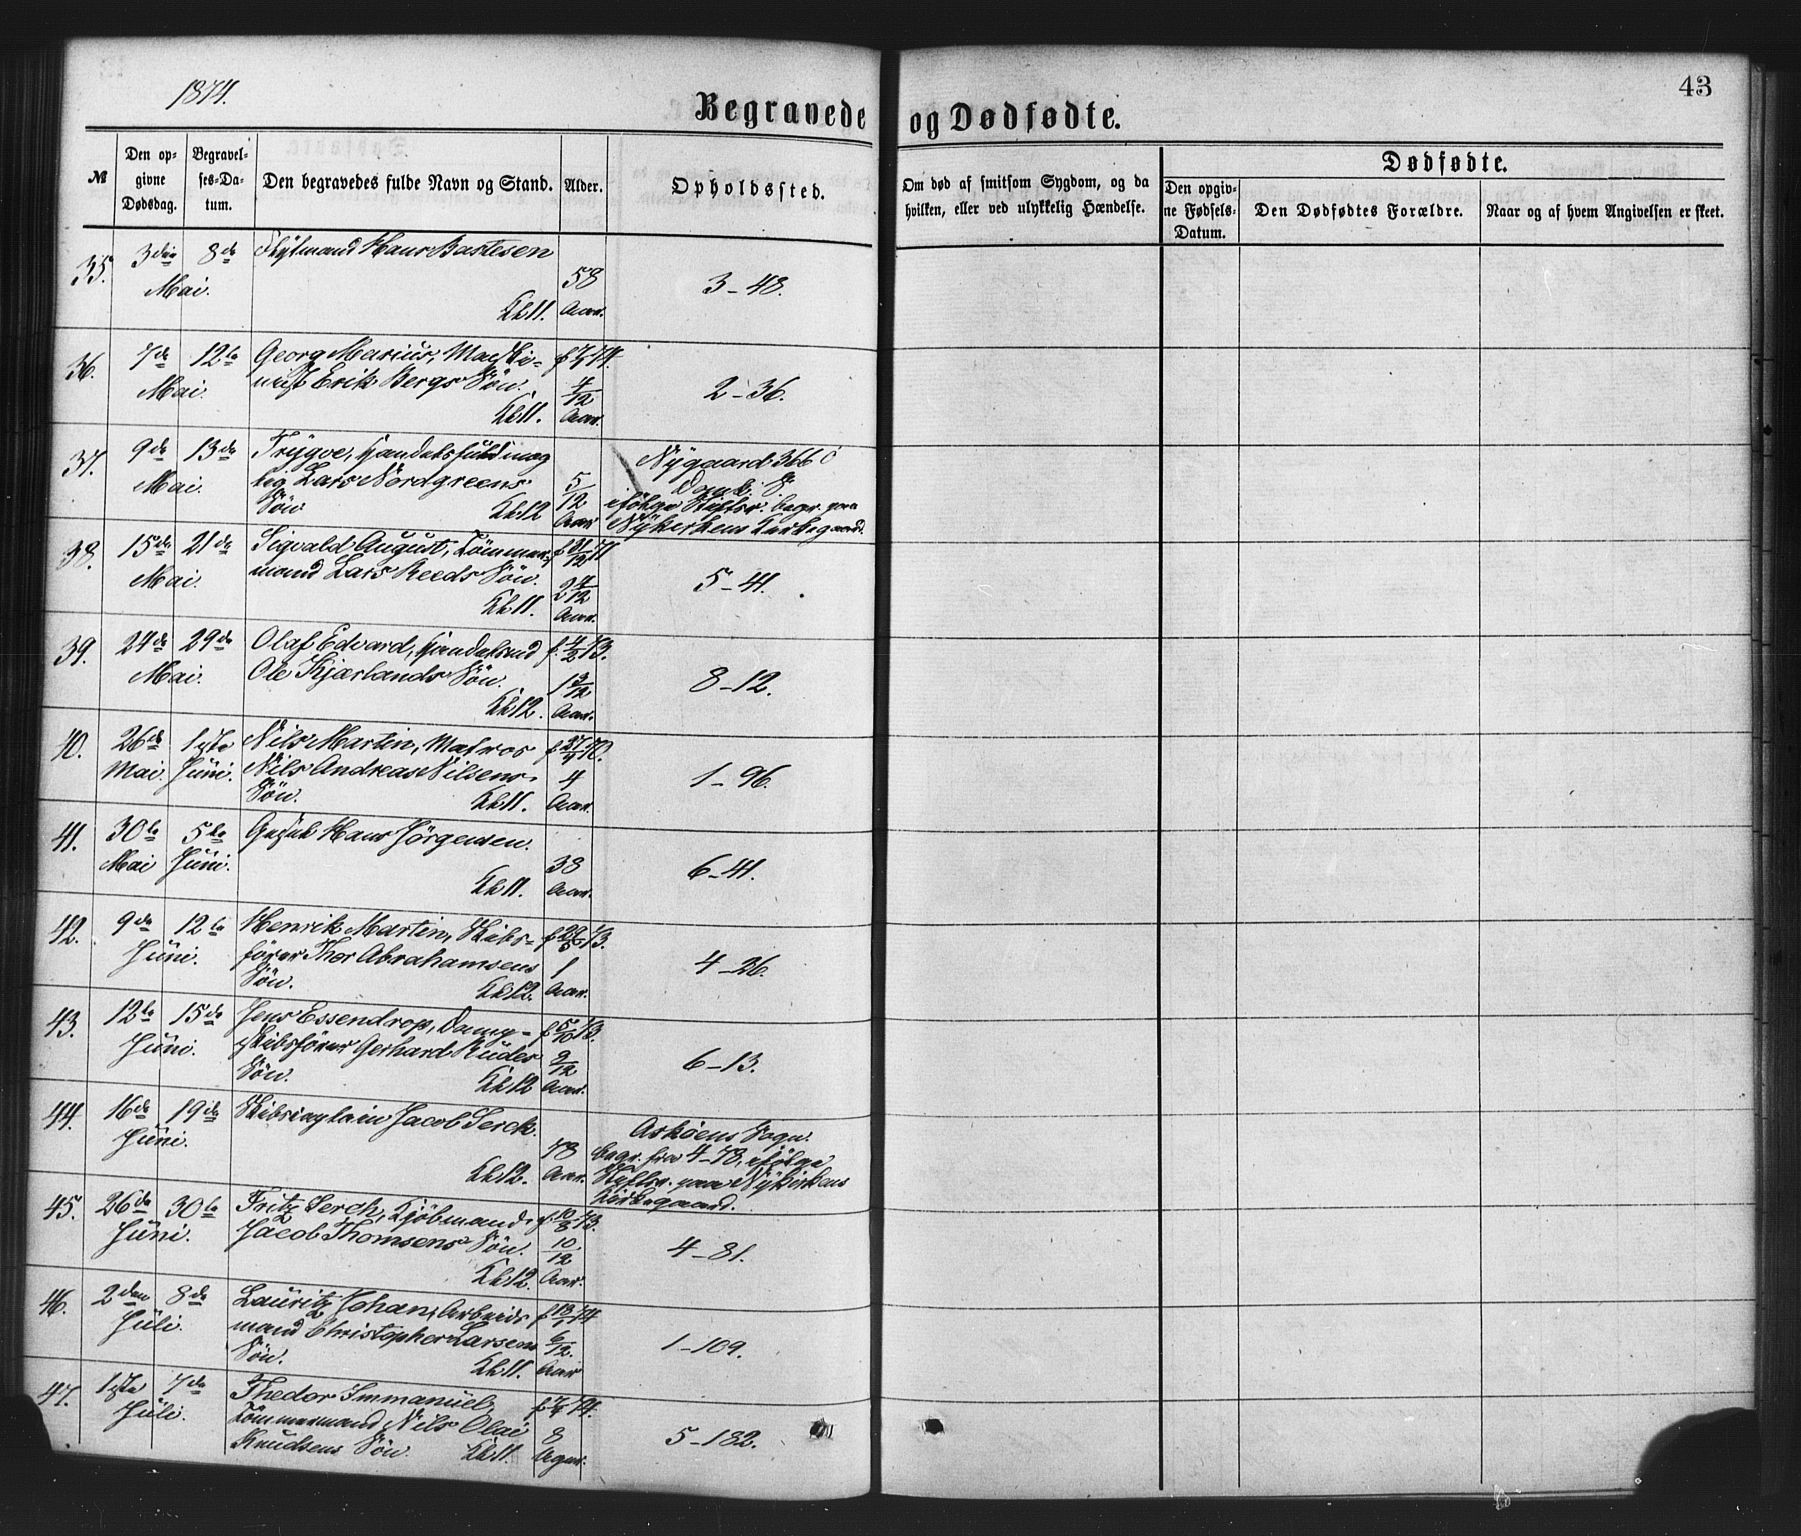 1874.
43
Begravede og Dødfødte.
№
Den opgivne Dødsdag.
Begravelses-Datum.
Den begravedes fulde Navn og Stand.
Alder.
Opholdssted.
Om død af smitsom Sygdom, og da
hvilken, eller ved ulykkelig Hændelse.
Dødfødte.
Den opgivne Fødsels-Datum.
Den Dødfødtes Forældre.
Naar og af hvem Angivelsen er skeet.
35. 3die 8de Hans Bastesen
Mai. 58 3-48.
Kl. 11. Aar.
36. 7de 12te Georg Marius, Maski-
Mai. nist Erik Bergs Søn. 4/12 2-36.
Kl. 11. Aar.
37. 9de 13de Trygve, Handelsfuldmæg
Mai. tig Lars Nordgreens 5/12
Søn Kl. 12 Aar
Nygaard 366 C
ifølge Skiftr. begr. paa
Nykirkens Kirkegaard.
38. 15de 21de Sigvald August, Tømmer- f 31/12 71
Mai. mand Lars Reeds Søn. 2 4/12 5-41.
Kl. 11. Aar.
39. 24de 29de Olaf Edvard, Handelsbud f. 4/2 73.
Mai. Ole Kjærlands Søn. 1 3/12 8-12.
Kl. 12. Aar.
40. 26de 1ste Nils Martin, Matros f 27/4 70.
Mai. Juni. Nils Andreas Nilsens 4 1-96.
Søn. Kl. 11. Aar.
41. 30te 5te Hans Jørgensen.
Mai Juni. 38 6-41.
Kl. 11. Aar.
42. 9de 12te Henrik Martin, Skibs- f 29/5 73.
Juni. fører Thor Abrahamsens 1 4-26.
Søn. Kl. 12. Aar.
43. 12te 15de Jens Essendrop, Damp- f 5/10 73.
Juni. skibsfører Gerhard Rudes 9/12 6-13.
Søn. Kl. 12 Aar.
44. 16de 19de Skibscaptain Jacob Lerck.
Juni. 78
Kl. 12. Aar.
Askøens Sogn.
begr. fra 4-78, ifølge
Skiftr. paa Nykirkens
Kirkegaard.
45. 26de 30te Fritz Lerch, Kjøbmand f 10/8 73.
Juni. Jacob Thomsens Søn. 10/12 4-81.
Kl. 12. Aar.
46. 2den 8de Lauritz Johan, Arbeids f 13/1 74
Juli. mand Christopher Larsens 6/12. 1-109.
Søn. Kl. 11. Aar
47. 1ste 7de Thedor Immanuel,
Juli. Tømmermand Nils Olai 8 5-182.
Knudsens Søn. Kl. 11.